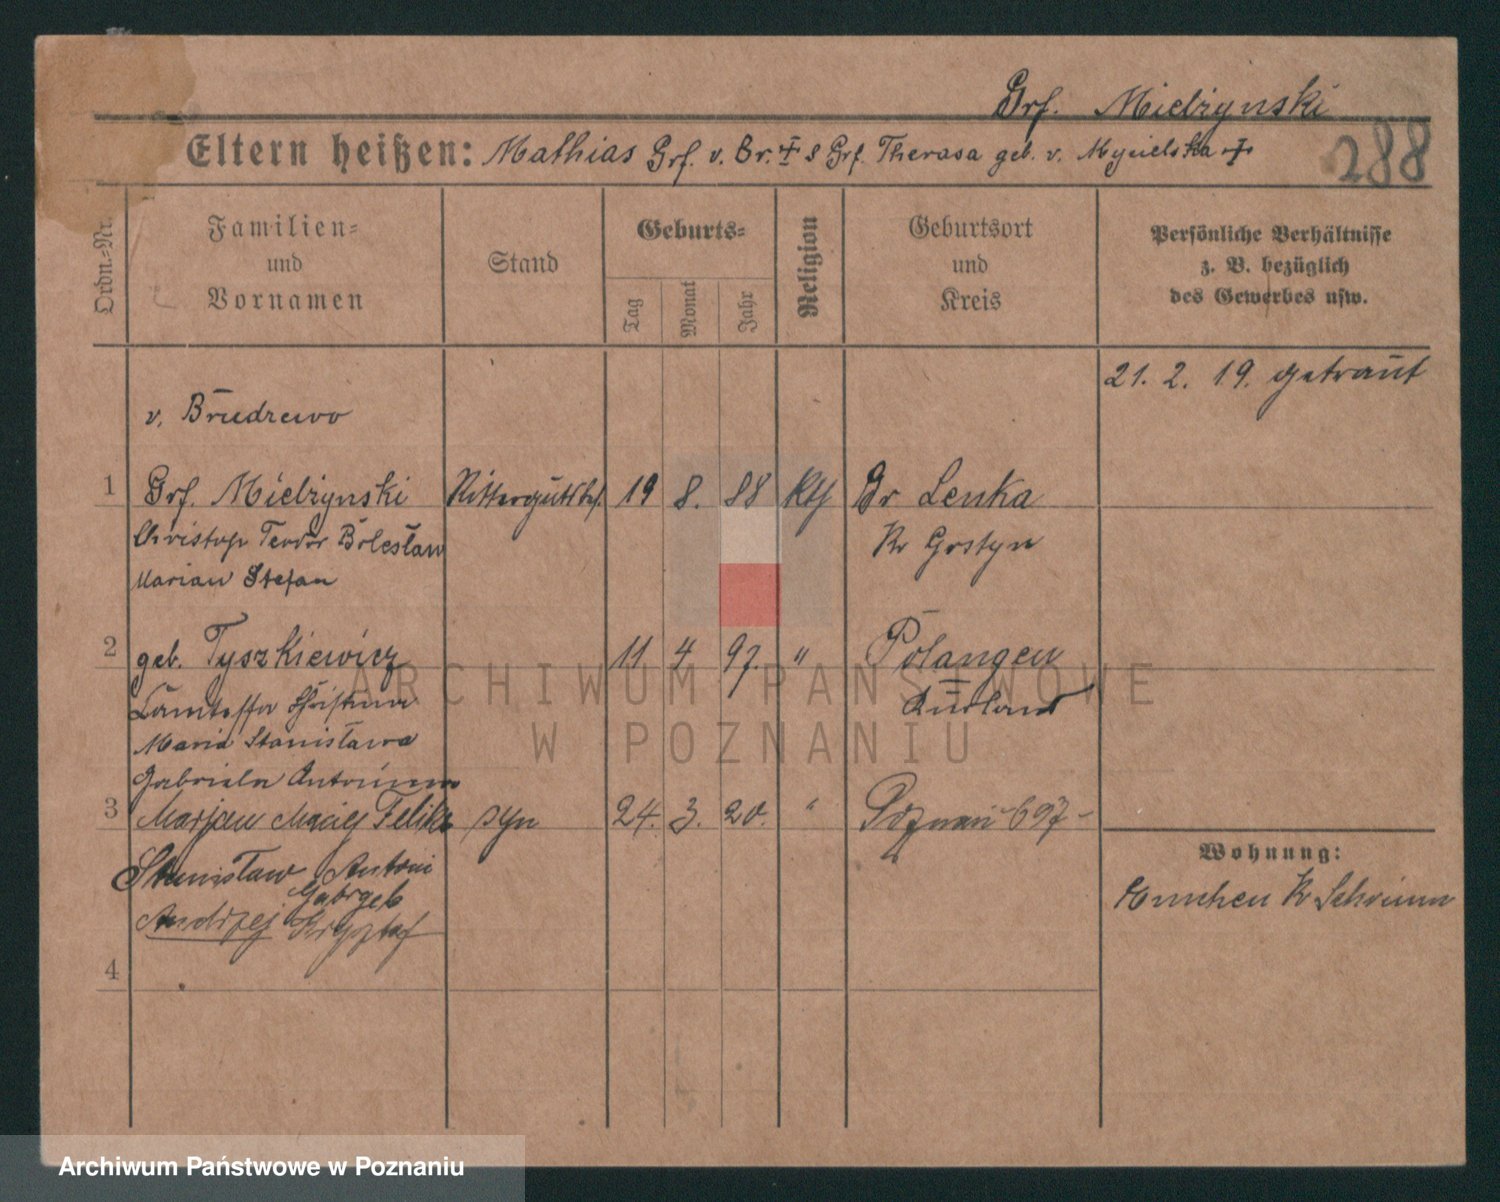 Grf. Mielżynski
Eltern heißen: Mathias Grf. v. Br. & Grf. Therasa geb. v. Mycielska
288
Ordn.-Nr.
Familien- und Vornamen
Stand
Geburts-
Tag
Monat
Jahr
Religion
Geburtsort und Kreis
Persönliche Verhältnisse
z. B. bezüglich
des Gewerbes usw.
21. 2. 19. getraut
v. Brudzewo
1 Grf. Mielżynski Rittergutsbes. 19 8. 88 Kth Gr Lenka
Christop Teodor Bolesław Kr Gostyn
Marian Stefan
2 geb. Tyszkiewicz 11 4 97. " Polangen
Kurland
Maria Stanisława
Gabriela Antonina
3 Marjan Maciej Feliks syn 24. 3. 20. " Poznań 697-
Stanisław Antoni
Gabryel
Andrzej Krysztof
4
Wohnung:
Kr Schrimm
ARCHIWUM PAŃSTWOWE
W POZNANIU
Archiwum Państwowe w Poznaniu